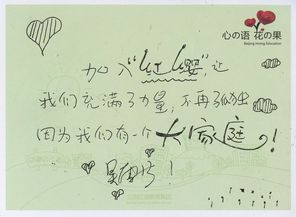 心の语 花の果
Beijing Hong Education
加入“红缨”让
我们充满了力量，不再孤独
因为我们有一个大家庭の！